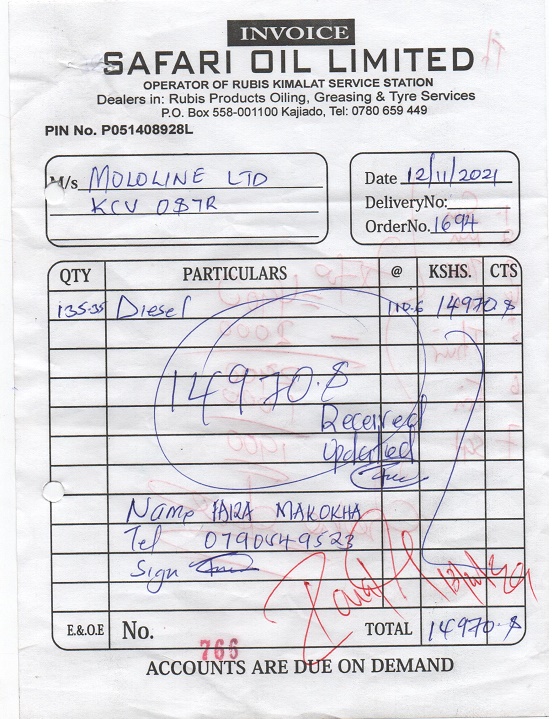 INVOICE
SAFARI OIL LIMITED
OPERATOR OF RUBIS KIMALAT SERVICE STATION
Dealers in: Rubis Products Oiling, Greasing & Tyre Services
P.O. Box 558-001100 Kajiado, Tel: 0780 659 449
PIN No. P051408928L
M/s MOLOLINE LTD
Date 12/11/2021
DeliveryNo:
OrderNo. 1694
QTY PARTICULARS @ KSHS. CTS
135.35 Diesel 110.6 14970.8
14970.8
Received
updated
Name MAKOKHA
Tel 0790549523
Sign
E.&.O.E No. 766 TOTAL 14970.8
ACCOUNTS ARE DUE ON DEMAND